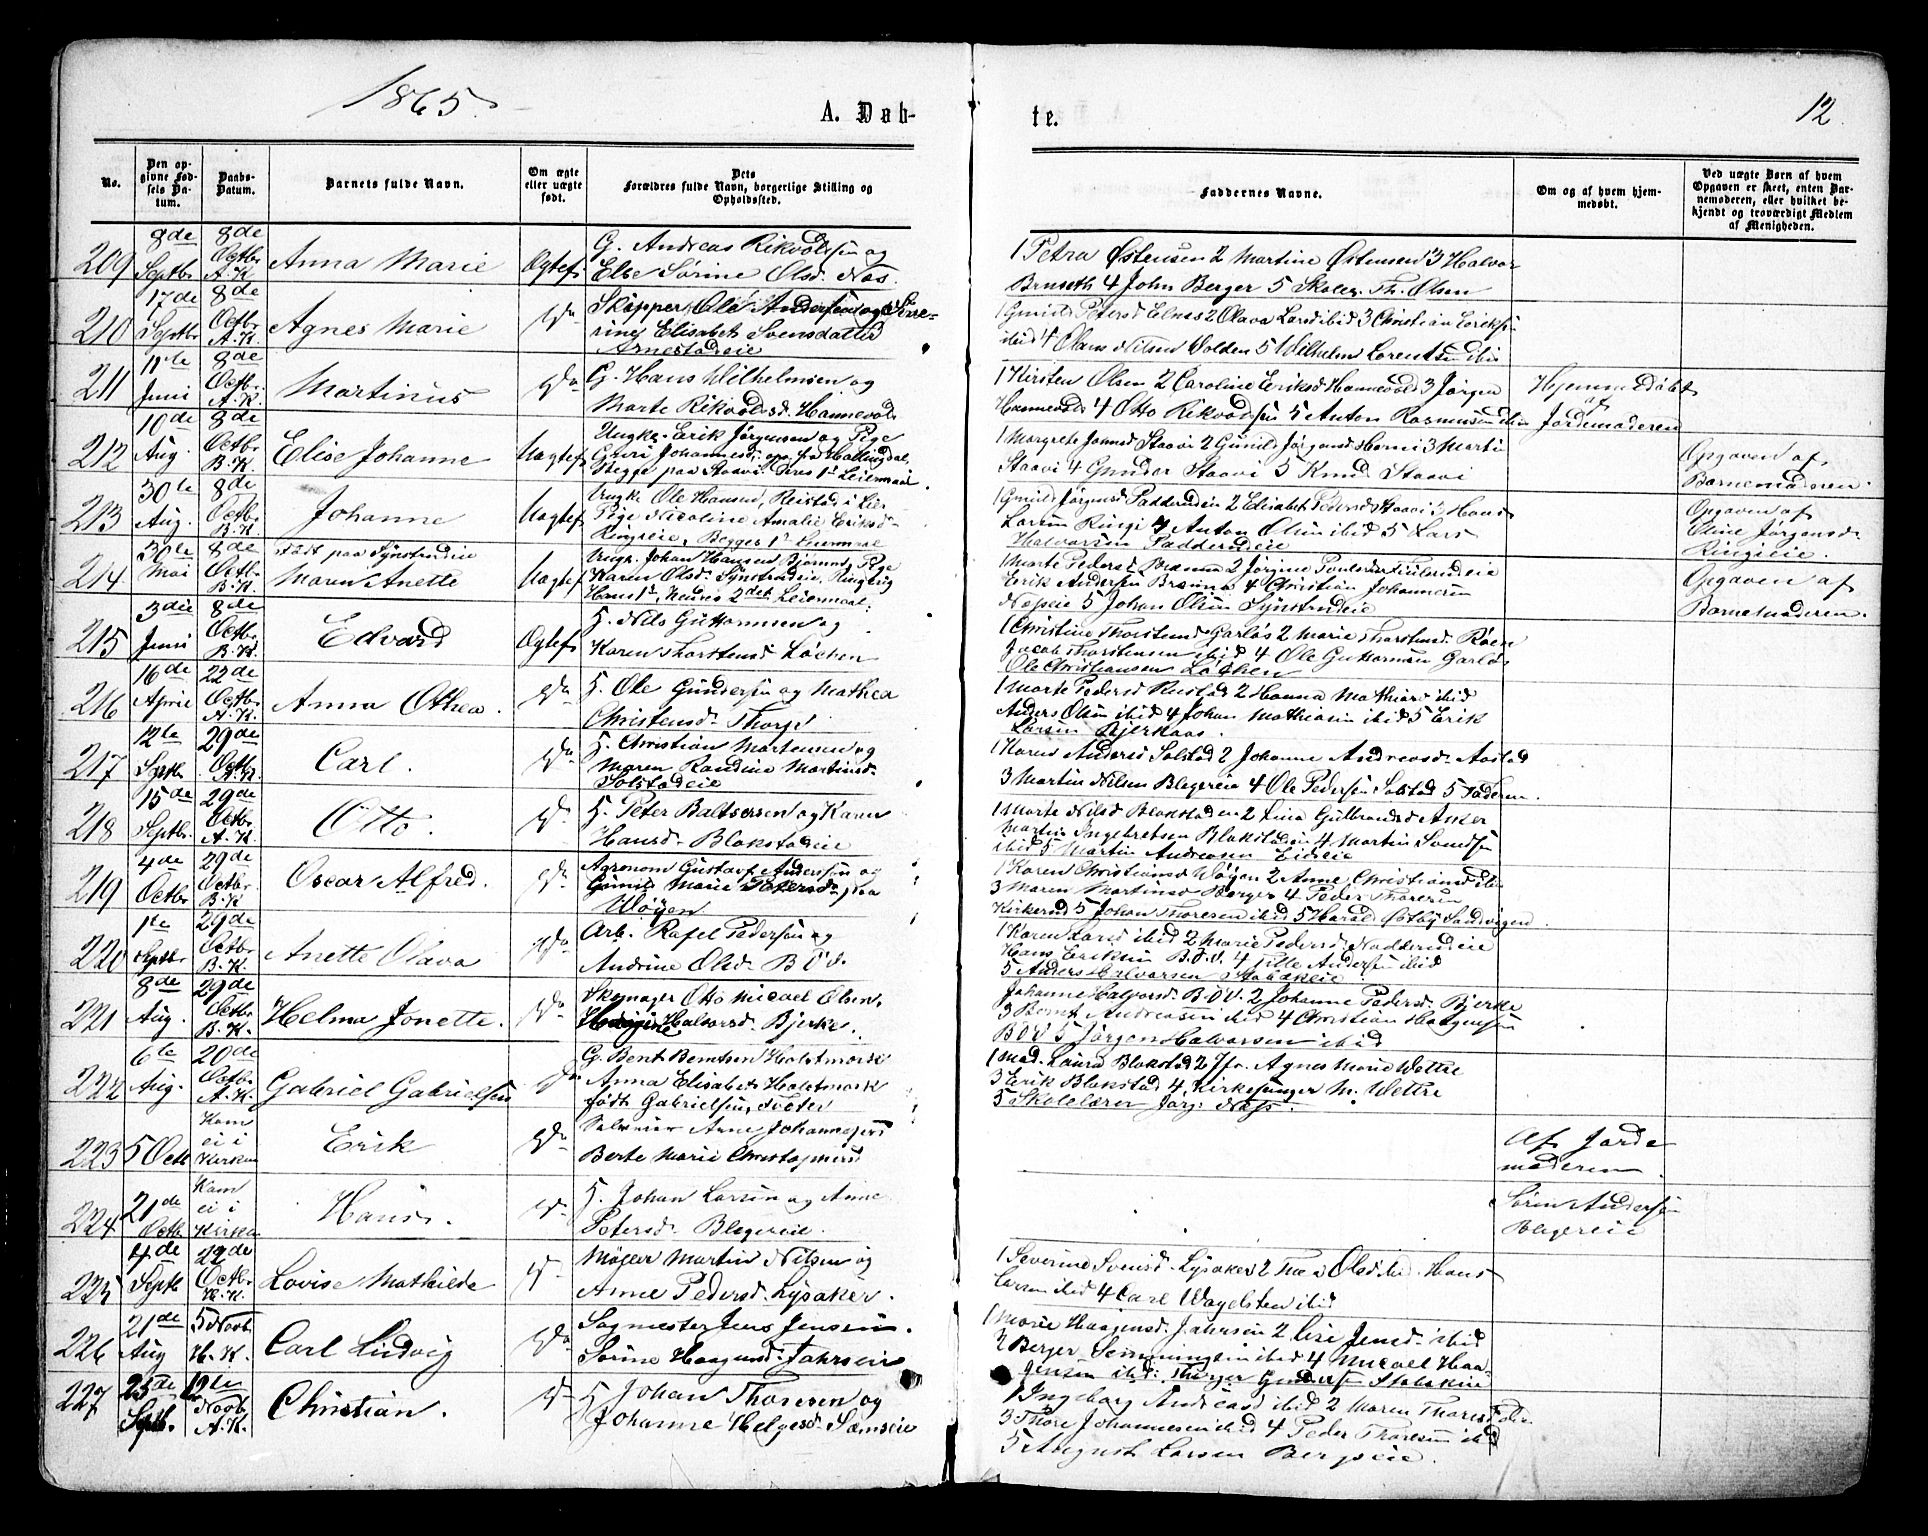 1865.
A. Døb-
te.
12
No.
Den op-
givne Fød-
sels Da-
tum.
Daabs-
Datum.
Barnets fulde Navn.
Om ægte
eller uægte
født.
Dets
Forældres fulde Navn, borgerlige Stilling og
Opholdssted.
Faddernes Navne.
Om og af hvem hjem-
medøbt.
Ved uægte Børn af hvem
Opgaven er skeet, enten Bar-
nemoderen, eller hvilket be-
kjendt og troværdigt Medlem
af Menigheden.
209 8de Septbr 8de Octbr A.K Anna Marie Ægtef
G. Andreas Rikvoldsen og
Else Sørine Olsd. Næs.
1 Petra Østensen 2 Martine Østensen 3 Halvor
Bruseth 4 John Berger 5 Skolel. Th. Olsen
210 17de Septbr 8de Octbr A.K. Agnes Marie Do
Skipper Ole Andersen og
Elisabeth Svensdatter
Arnestadeie
1 Gunild Petersd Elnæs 2 Olava Larsd ibid 3 Christian Eriksen
ibid 4 Olaus Nilsen Volden 5 Wilhelm Lorentsen ibid
211 11te Juni 8de Octbr A.K. Martinus Do
G. Hans Wilhelmsen og
Marte Rikvoldsd. Hannevold
1 Kirsten Olsen 2 Caroline Eriksd Hannevold 3 Jørgen
Hannevold 4 Otto Rikvoldsen 5 Anton Rasmussen ibid
Hjemmedøbt
af
Jordemoderen
212 10de Aug. 8de Octbr B.K. Elise Johanne Uægtef
Ungk. Erik Jørgensen og Pige
Guri Johannesd. fra Hallingdal,
Begge paa Staavi. Deres 1ste Leiermaal.
1 Margrete Jonsd Staavi 2 Gunild Jørgensd Horni 3 Martin
Staavi 4 Gunder Staavi 5 Knud Staavi
Opgaven af
Barnemoderen.
213 30te Aug. 8de Octbr B.K. Johanne Uægtef
Ungk Ole Hansen, Reistad i Lier
Pige Nicoline Amalie Eriksd-
Ringieie, Begges 1ste Leiermaal
1 Gunild Jørgensd Padderudeie 2 Elisabet Pedersd Staavi 3 Hans
Larsen Ringi 4 Anton Olsen ibid 5 Lars
Halvorsen Padderudeie
Opgaven af
Eline Jørgensd
Ringieie.
214 30te Mai 8de Octbr B.K. Født paa Synstrudeie
Maren Anette Uægtef
Ungk. Johan Hansen Pige
Karen Olsd. Synstrudeie,
Hans 1ste, hendes 2det Leiermaal.
1 Marte Pedersd 2 Jørgine
Erik Andersen 4 Christian Johannesen
Næseie 5 Johan Olsen Synstrudeie
Opgaven af
Barnemoderen.
215 3die Juni 8de Octbr B.K. Edvard Ægtef
H. Nils Guttormsen og
Karen Thorstensd Løkken
1 Christine Thorstensd Garløs 2 Marie Thorstensd. Røen
Jacob Thorstensen ibid 4 Ole Guttormsen Garløs
Ole Christiansen Løkken
216 16de April 22de Octbr A.K. Anna Othea. Do
H. Ole Gundersen og Mathea
Christensd. Thorp
1 Marte Pedersd Rustad 2 Hanna Mathiasd ibid
Anders Olsen ibid 4 Johan Mathiasen ibid 5 Erik
Larsen Bjerkaas.
217 12te Septbr. 29de Octbr A.K. Carl. Do
H. Christian Martensen og
Maren Randine Martinsd.
Solstadeie
1 Karen Andersd Solstad 2 Johanne Andreasd. Aastad
3 Martin Nilsen Blegereie 4 Ole Pedersen Solstad 5 Faderen.
218 15de Septbr. 29de Octbr A.K. Otto. Do
H. Peter Baltsersen og Karen
Hansd. Blakstadeie
1 Marte Nilsd Blakstadeie 2 Lina Gulbrandsd Asker
Martin Ingebretsen Blakstadeie 4 Martin Svendsen
ibid 5 Martin Andreasen Eideeie
219 4de Octbr. 29de Octbr. B.K Oscar Alfred. Do
Agronom Gustav Andersen og
Marie Petersd. paa
Wøyen
1 Karen Christiansd Wøyen 2 Anne Christiansd ibid
3 Maren Martinsd Berger 4 Peder Thoresen
Kirkerud 5 Johan Thoresen ibid 5 Harald Østby Sandvigen
220 1te Septbr. 29de Octbr B.K. Anette Olava Do
Arb. Rafel Pedersen og
Andrine Olsd. B.Ø.V.
1 Karen Larsd ibid 2 Marie Pedersd. Nadderudeie
Hans Eriksen B.Ø.V. 4 Andersen ibid
5 Anders Halvorsen Stabækeie
221 8de Aug. 29de Octbr B.K. Helma Jonette. Do
Skomager Otto Micael Olsen.
Halvorsd. Bjerke.
Johanne Halvorsd. B.Ø.V. 2 Johanne Pedersd. Bjerke
3 Bernt Andreasen ibid 4 Christian Haagensen
B.Ø.V 5 Jørgen Halvorsen ibid
222 6te Aug. 20de Octbr. A.K. Gabriel Gabrielsen Do
G. Bent Berntsen Holstmark
Anna Elisabeth Holstmark
født Gabrielsen, Tveter
1 Mad. Laura Blakstad 2 Jfr. Agnes Marie Wettre
3 Erik Blakstad 4 Kirkesanger M. Wettre
5 Skolelærer Jørg. Næs.
223 5 Octb Kom
ei i
Kirken Erik Do
Arne Johannesen
Berte Marie Christophersd
Af Jorde
moderen
224 21de Octbr Kom
ei i
Kirken Hans. Do
H. Johan Larsen og Anne
Petersd. Blegereie.
Sørin Andersen
Blegereie
225 4de Septb 22de Octbr. H.K. Lovise Mathilde Do
Møller Martin Nilsen og
Anne Pedersd. Lysaker.
1 Severine Svensd. Lysaker 2 Olsd ibid. Hans
Larsen ibid 4 Carl Wagelsten ibid
226 21de Aug 5 Novb. H.K. Carl Ludvig Do
Sagmester Jens Jensen.
Sørine Haagensd. Jahrseie
1 Marie Haagensd. Jahrseie 2 Lise Jensd. ibid
3 Berger Semmingsen ibid 4 Micael Haa-
gensen ibid. Gundersen Stabækeie
227 25de Septb. 12te Novb. A.K. Christian. Do
H Johan Thoresen og
Johanne Helgesd. Semseie
1 Ingeborg Andreasd ibid 2 Maren Thoresd ibid
3 Thore Johannesen ibid 4 Peder Thoresen ibid
5 August Larsen Bergseie.